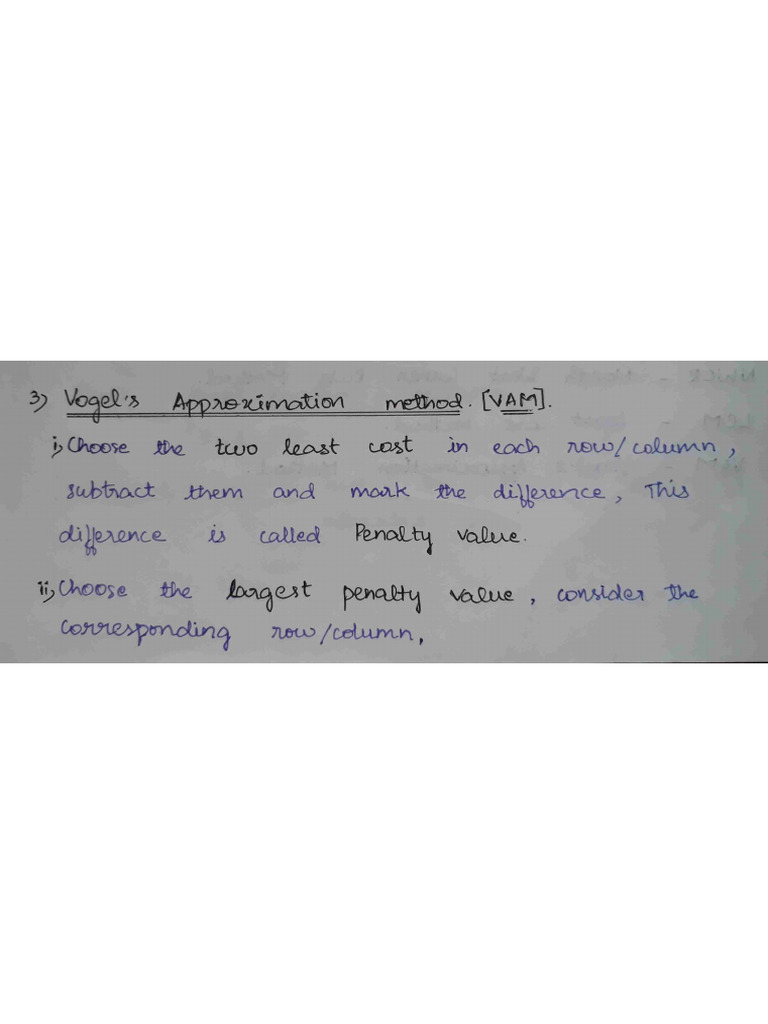 3) Vogel's Approximation method. [VAM].
i) Choose the two least cost in each row/column,
subtract them and mark the difference, This
difference is called Penalty value.
ii) Choose the largest penalty value, consider the
corresponding row/column,